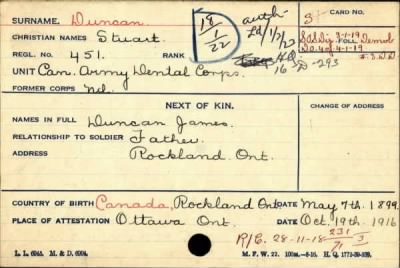 SURNAME. Duncan.
CHRISTIAN NAMES Stuart.
REGL. NO. 451. RANK
UNIT Can. Army Dental Corps.
FORMER CORPS Nil.
D 18/1/22
auth-
CARD NO.
S
FOLL.
Sol. Dis. 3-1-19 Demob
D.O. 4 of 4-1-19
H.Q.
NEXT OF KIN.
CHANGE OF ADDRESS
NAMES IN FULL Duncan James.
RELATIONSHIP TO SOLDIER Father.
ADDRESS Rockland Ont.
COUNTRY OF BIRTH Canada, Rockland Ont. DATE May 7th. 1899.
PLACE OF ATTESTATION Ottawa Ont. DATE Oct. 19th 1916
R/C. 28-11-18 231/71 3
L. L. 6945. M. & D. 6904. M. F. W. 22. 100m.-8-16. H. Q. 1772-39-839.